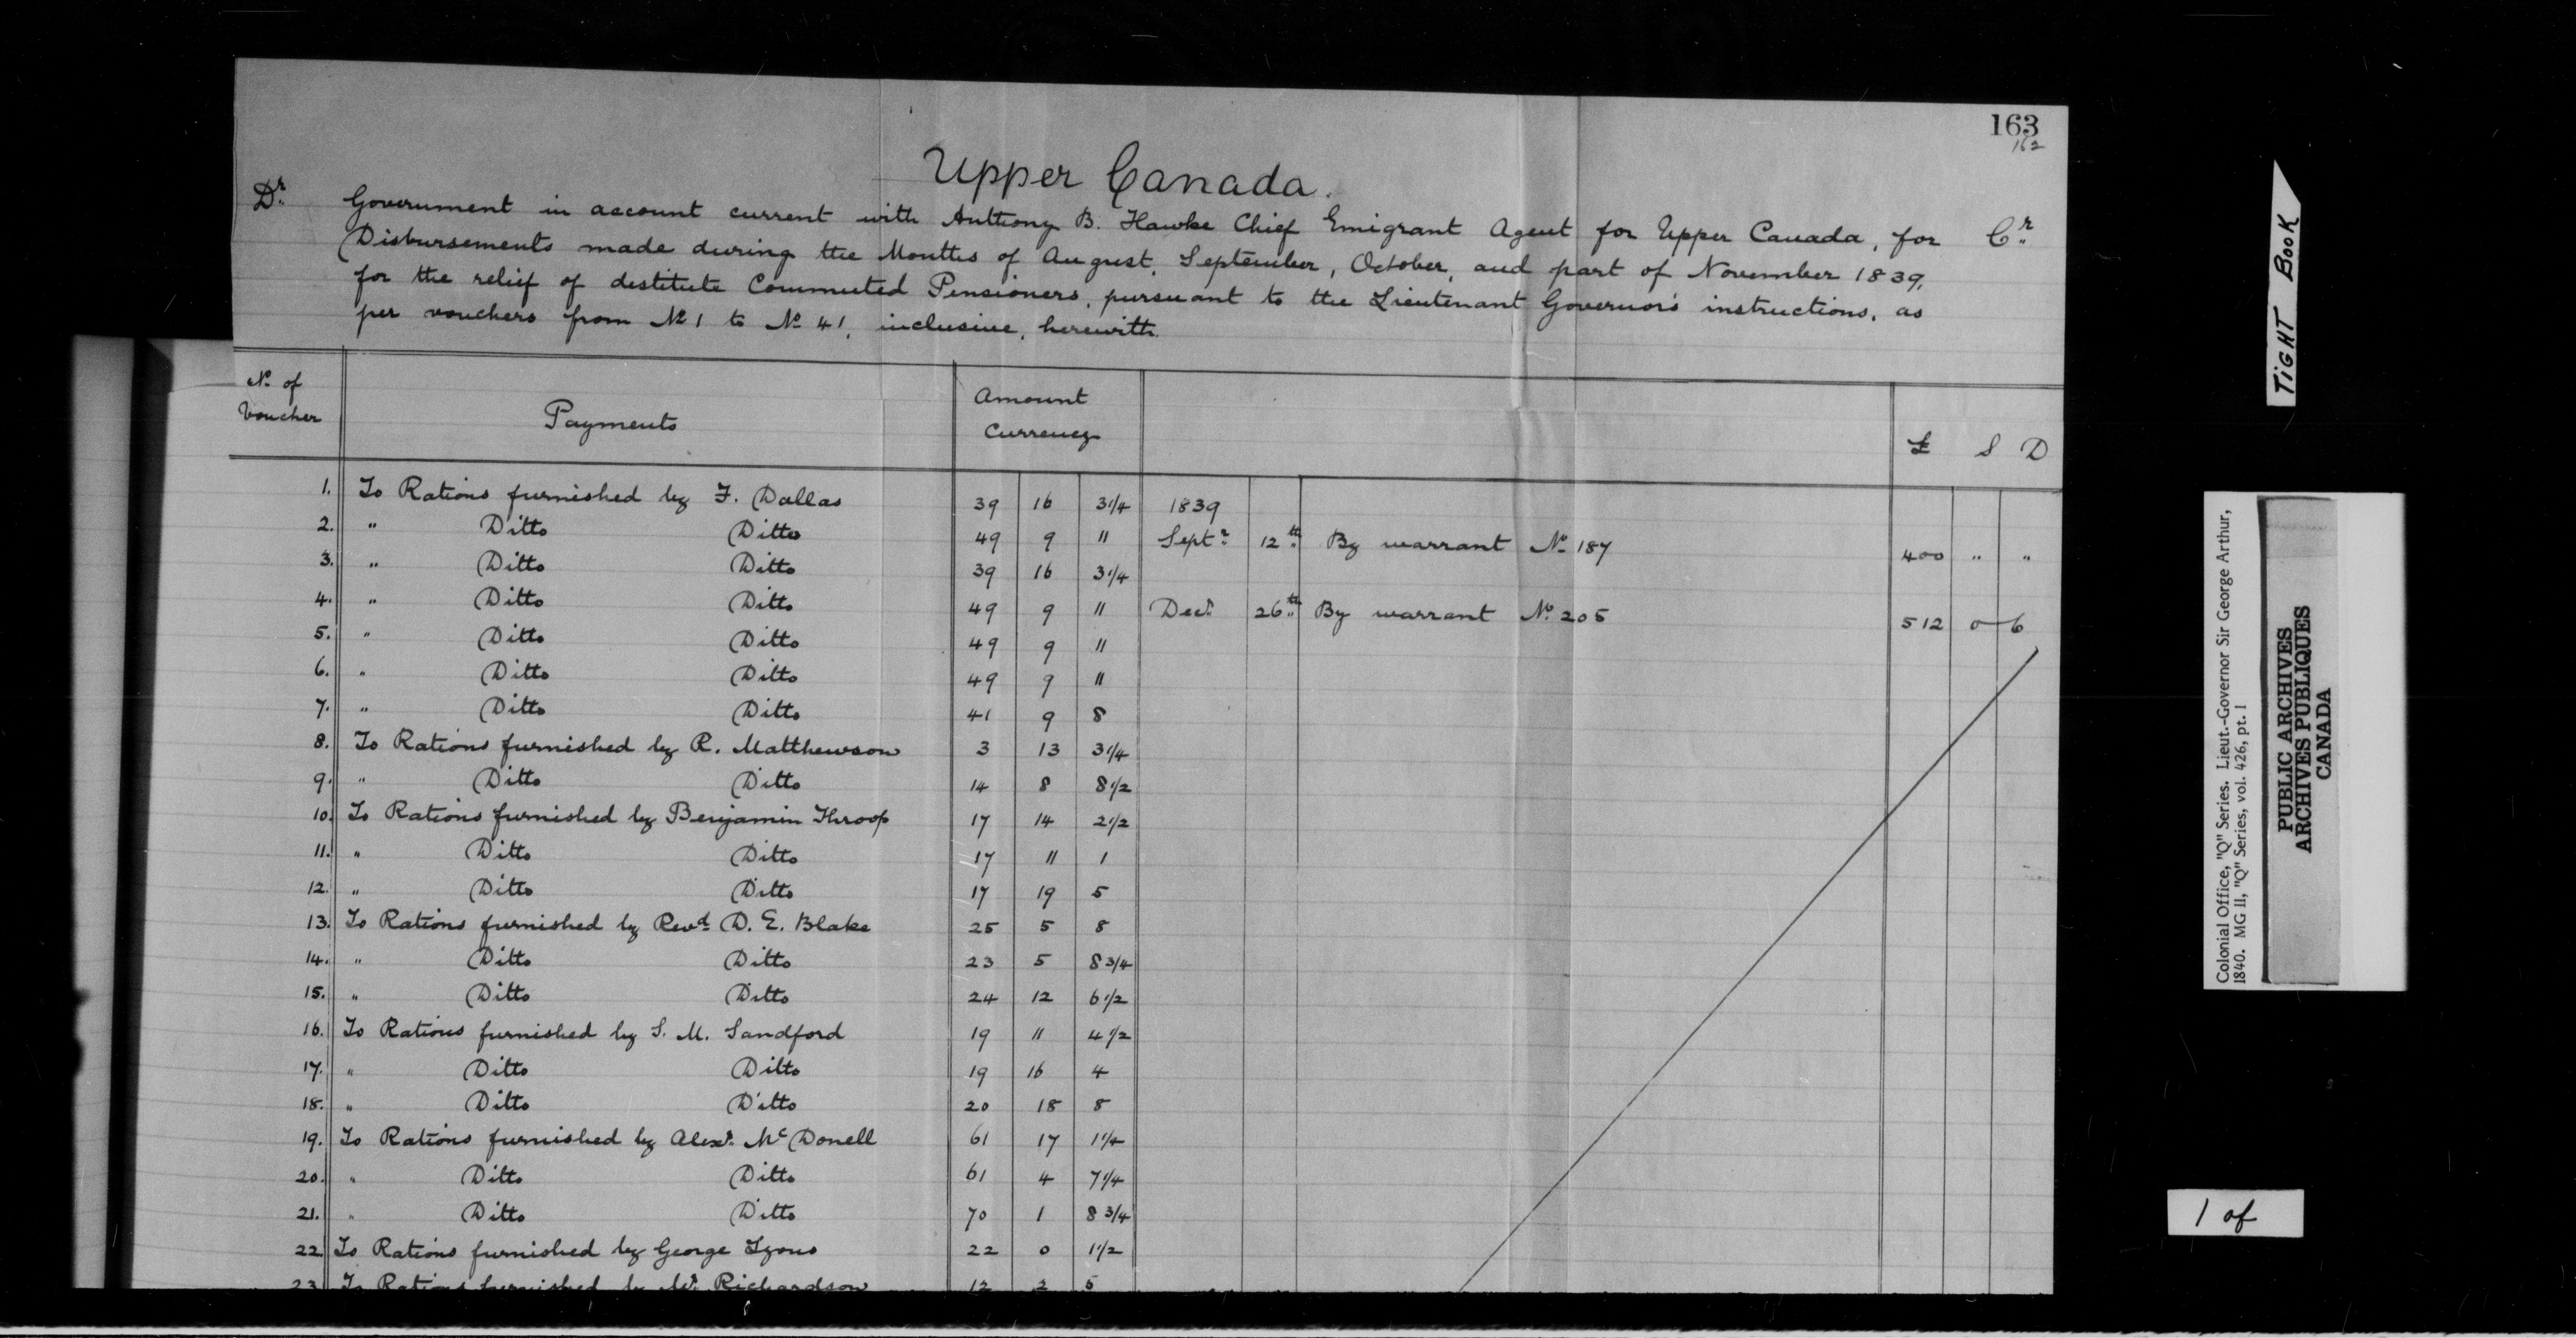 163
162
Upper Canada.
Dr. Government in account current with Anthony B. Hawke Chief Emigrant Agent for Upper Canada, for Cr.
Disbursements made during the Months of August, September, October, and part of November 1839,
for the relief of destitute Commuted Pensioners, pursuant to the Lieutenant Governor's instructions, as
per vouchers from No 1 to No 41, inclusive, herewith.
No of Voucher Payments Amount Currency £ S D
1. To Rations furnished by F. Dallas 39 16 3 1/4 1839
2. " Ditto Ditto 49 9 11 Septr 12th By warrant No 187 400 " "
3. " Ditto Ditto 39 16 3 1/4
4. " Ditto Ditto 49 9 11 Decr 26th By warrant No 205 512 0 6
5. " Ditto Ditto 49 9 11
6. " Ditto Ditto 49 9 11
7. " Ditto Ditto 41 9 8
8. To Rations furnished by R. Matthewson 3 13 3 1/4
9. " Ditto Ditto 14 8 8 1/2
10. To Rations furnished by Benjamin Throop 17 14 2 1/2
11. " Ditto Ditto 17 11 1
12. " Ditto Ditto 17 19 5
13. To Rations furnished by Revd D. E. Blake 25 5 8
14. " Ditto Ditto 23 5 8 3/4
15. " Ditto Ditto 24 12 6 1/2
16. To Rations furnished by S. M. Sandford 19 11 4 1/2
17. " Ditto Ditto 19 16 4
18. " Ditto Ditto 20 18 8
19. To Rations furnished by Alexr. McDonell 61 17 1 1/4
20. " Ditto Ditto 61 4 7 1/4
21. " Ditto Ditto 70 1 8 3/4
22. To Rations furnished by George Lyons 22 0 1 1/2
23. To Rations furnished by Richardson 12 2 5
TIGHT BOOK
Colonial Office, "Q" Series. Lieut.-Governor Sir George Arthur,
1840. MG 11, "Q" Series, vol. 426, pt. 1
PUBLIC ARCHIVES
ARCHIVES PUBLIQUES
CANADA
1 of